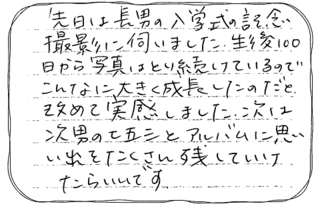 先日は長男の入学式の記念
撮影に伺いました。生後100
日から写真はとり続けているので
こんなに大きく成長したのだと
改めて実感しました。次は
次男の七五三とアルバムに思い
い出をたくさん残していけ
たらいいです